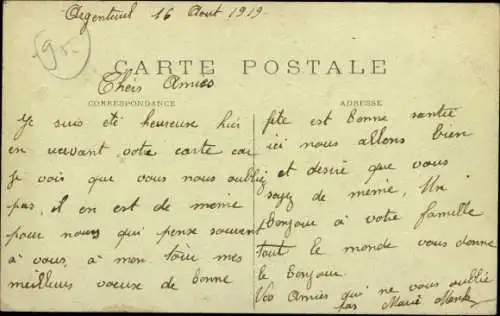 Argenteuil 16 Aout 1919
95.-
CARTE POSTALE
Chèrs Amies
CORRESPONDANCE
ADRESSE
Je suis été heureuse hièr
en recevant votre carte car
Je vois que vous nous oubliez
pas, il en est de meme
pour nous qui pense souvent
à vous, à mon tour mes
meilleurs voeuse de bonne
fête est bonne santié
ici nous allons bien
et desiré que vous
soyez de méme, Un
Bonjour à votre famille
tout le monde vous donne
le Bonjour.
Vos Amies qui ne vous oublie
pas Marie